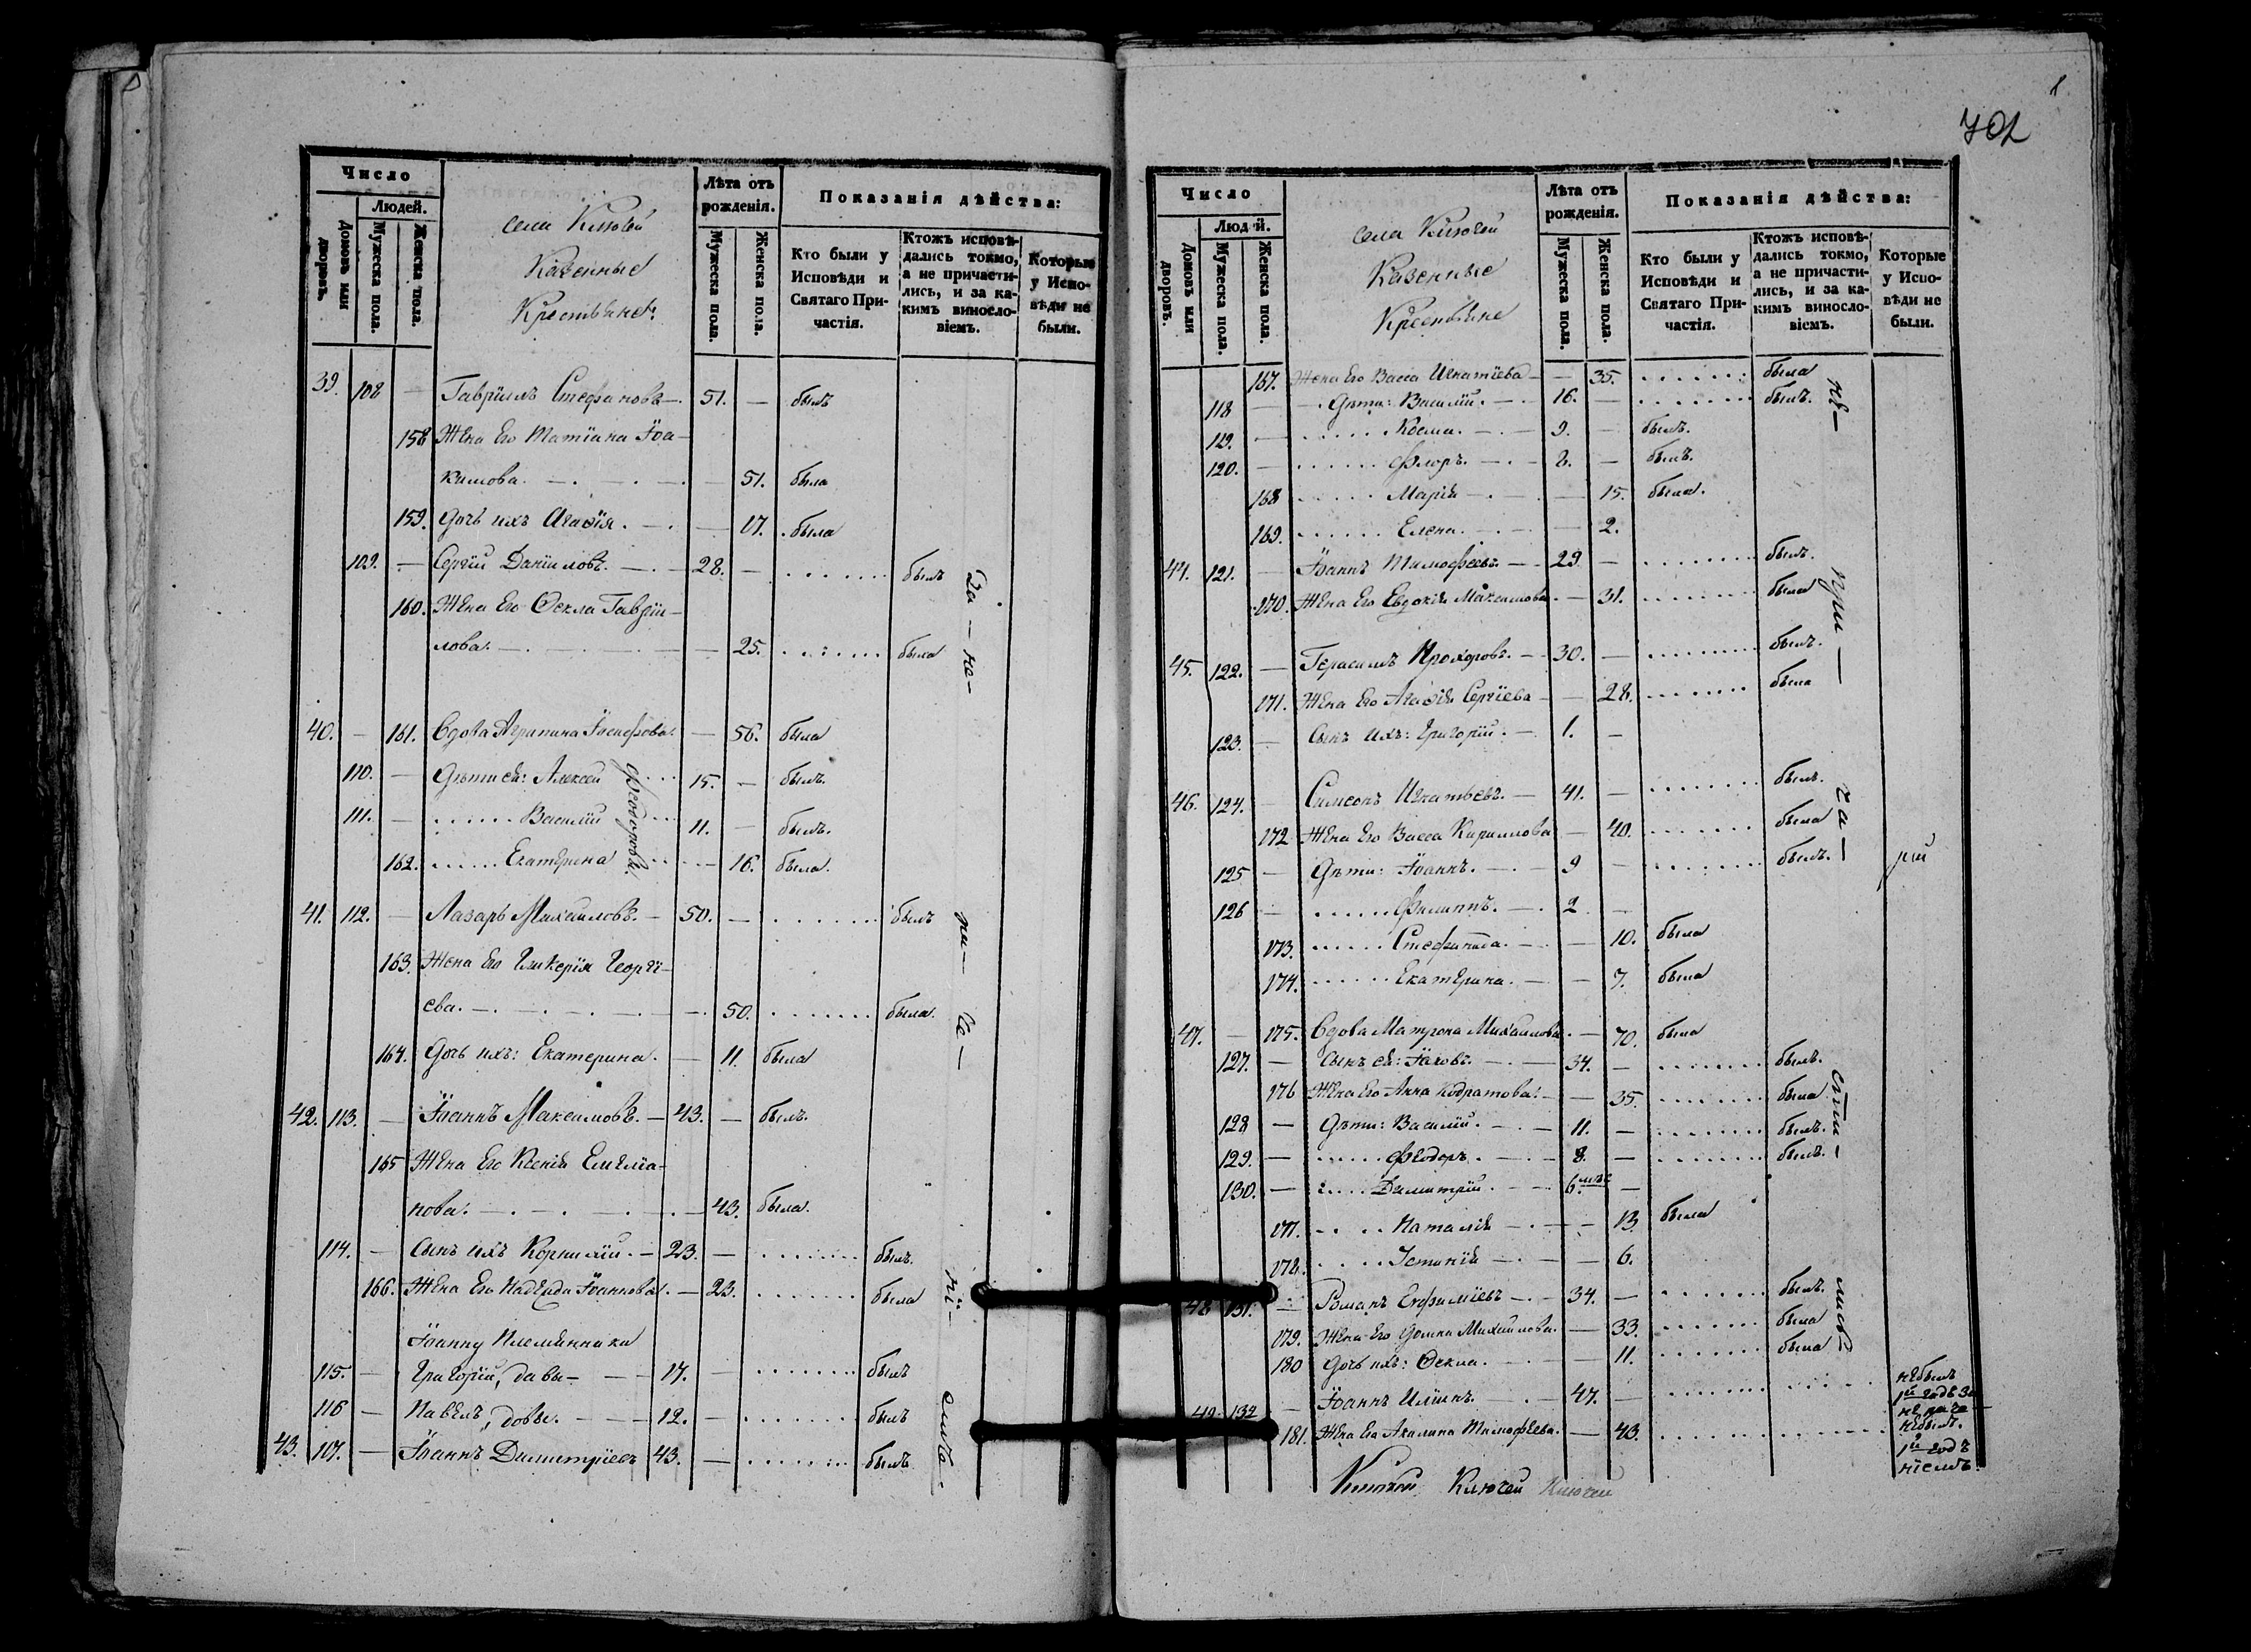 Число
Людей.
Домовъ или дворовъ.
Мужеска пола.
Женска пола.
села Ключей
Казенные
Крестьяне:
Лѣта отъ рожденія.
Мужеска пола.
Женска пола.
Показанія дѣйства:
Кто были у Исповѣди и Святаго Причастія.
Ктожъ исповѣдались токмо, а не причастились, и за какимъ винословіемъ.
Которые у Исповѣди не были.
39. 108 — Гавріилъ Стефановъ — 51. — былъ
158 Жена Его Татіана Іоа-
кимова. — 51. была
159. Дочь ихъ Агафія. — 17. была
109. — Сергій Даніиловъ. — 28. — былъ
160. Жена Его Ѳекла Гаврiи-
лова. — 25. была
40. — 161. Вдова Агрипина Іосифова. — 56. была
110. — Дѣти ея: Алексей 15. — былъ.
111. — Василій 11. — былъ.
162. Екатерина — 16. была.
Феодоровы.
41. 112. — Лазарь Михаиловъ. — 50. — былъ
163. Жена Его Гликерія Георгі-
ева. — 50. была.
164. Дочь ихъ: Екатерина. — 11. была
42. 113. — Іоаннъ Максимовъ. — 43. — былъ.
165 Жена Его Ксенія Емеліа-
нова. — 43. была.
114. — Сынъ ихъ Корнилій. — 23. — былъ.
166. Жена Его Надежда Іоаннова. — 23. была
Іоанну Племянники
115. — Григорій, Савы — 17. — былъ
116 — Павелъ, Савы. — 12. — былъ
43. 107. — Іоаннъ Димитріевъ 43. — былъ
За — не —
702
Число
Людей.
Домовъ или дворовъ.
Мужеска пола.
Женска пола.
села Ключей
Казенные
Крестьяне
Лѣта отъ рожденія.
Мужеска пола.
Женска пола.
Показанія дѣйства:
Кто были у Исповѣди и Святаго Причастія.
Ктожъ исповѣдались токмо, а не причастились, и за какимъ винословіемъ.
Которые у Исповѣди не были.
167. Жена Его Васса Игнатіева — 35. была
118 — Дѣти: Василій. — 16. — былъ.
119. — Косма. — 9. — былъ.
120. — Флоръ. — 8. — былъ.
168 Марія — 15. была.
169. Елена. — 2.
44. 121. — Іоаннъ Тимофеевъ. — 29 — былъ.
170. Жена Его Евдокія Максимова. — 31. была
45. 122. — Герасимъ Прохоровъ. — 30. — былъ.
171. Жена Его Агафія Сергіева — 28. была
123. — Сынъ ихъ: Григорій. — 1. —
46. 124. — Симеонъ Игнатьевъ. — 41. — былъ.
172 Жена Его Васса Кириллова — 40. была
125 — Дѣти: Іоаннъ. — 9 — былъ.
126 — Филиппъ. — 2 —
173. Стефанида. — 10. была
174. Екатерина. — 7. была
47. — 175. Вдова Матрона Михаилова. — 70. была
127. — Сынъ ея: Іаковъ. — 34. — былъ.
176 Жена Его Анна Кодратова. — 35. была
128 — Дѣти: Василій. — 11. — былъ.
129. — Феодоръ. — 8. — былъ.
130. — Димитрій. — 6. мѣс —
177. Наталія — 13. была
178. Устинія — 6.
48 131. — Романъ Евфиміевъ — 34. — былъ.
179. Жена Его Домна Михаилова. — 33. была
180 Дочь ихъ: Ѳекла. — 11. была
49. 132 — Іоаннъ Илiинъ. — 47. — небылъ
1й годъ за
181. Жена Его Акилина Тимофеева. — 43.
1й годъ
не — при — ча — сти — лись
Ключей Ключей Ключей